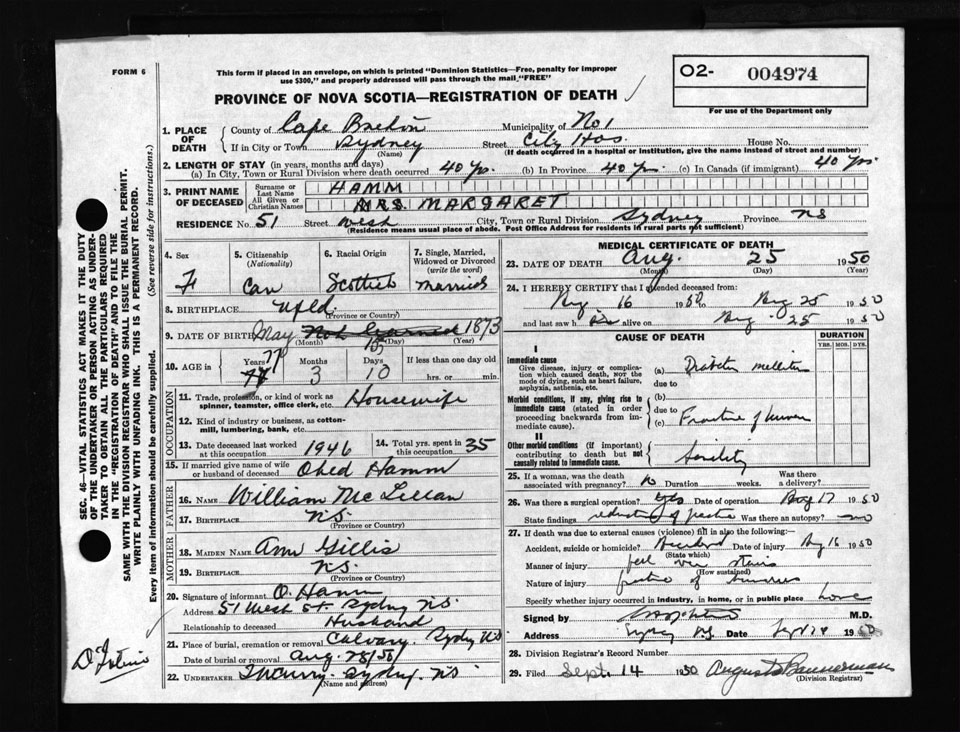 FORM 6
This form if placed in an envelope, on which is printed "Dominion Statistics—Free, penalty for improper
use $300," and properly addressed will pass through the mail "FREE"
O2- 004974
For use of the Department only
PROVINCE OF NOVA SCOTIA—REGISTRATION OF DEATH
SEC. 46—VITAL STATISTICS ACT MAKES IT THE DUTY
OF THE UNDERTAKER OR PERSON ACTING AS UNDER-
TAKER TO OBTAIN ALL THE PARTICULARS REQUIRED
IN THE "REGISTRATION OF DEATH" AND TO FILE THE
SAME WITH THE DIVISION REGISTRAR WHO SHALL ISSUE THE BURIAL PERMIT.
WRITE PLAINLY WITH UNFADING INK. THIS IS A PERMANENT RECORD.
Every item of information should be carefully supplied. (See reverse side for instructions.)
1. PLACE OF DEATH County of Cape Breton Municipality of No 1
If in City or Town Sydney (Name) Street City Hos. House No.
(If death occurred in a hospital or institution, give the name instead of street and number)
2. LENGTH OF STAY (in years, months and days)
(a) In City, Town or Rural Division where death occurred 40 yrs. (b) In Province 40 yrs (c) In Canada (if immigrant) 40 yrs.
3. PRINT NAME OF DECEASED Surname or Last Name HAMM
All Given or Christian Names MRS. MARGARET
RESIDENCE No. 51 Street West City, Town or Rural Division Sydney Province NS
(Residence means usual place of abode. Post Office Address for residents in rural parts not sufficient)
4. Sex F
5. Citizenship (Nationality) Can
6. Racial Origin Scottish
7. Single, Married, Widowed or Divorced (write the word) Married
8. BIRTHPLACE Nfld (Province or Country)
9. DATE OF BIRTH May Not Learned 15 1873
(Month) (Day) (Year)
10. AGE in Years 77 Months 3 Days 10 If less than one day old hrs. or min.
OCCUPATION
11. Trade, profession, or kind of work as spinner, teamster, office clerk, etc. Housewife
12. Kind of industry or business, as cotton-mill, lumbering, bank, etc.
13. Date deceased last worked at this occupation 1946
14. Total yrs. spent in this occupation 35
15. If married give name of wife or husband of deceased Obed Hamm
FATHER
16. NAME William McLellan
17. BIRTHPLACE NS. (Province or Country)
MOTHER
18. MAIDEN NAME Ann Gillis
19. BIRTHPLACE NS. (Province or Country)
20. Signature of informant O. Hamm
Address 51 West St. Sydney NS.
Relationship to deceased Husband
21. Place of burial, cremation or removal Calvary. Sydney NS
Date of burial or removal Aug. 28/50
22. UNDERTAKER Sydney. NS
(Name and address)
MEDICAL CERTIFICATE OF DEATH
23. DATE OF DEATH Aug. 25 1950
(Month) (Day) (Year)
24. I HEREBY CERTIFY that I attended deceased from
Aug 16 1950 to Aug 25 1950
and last saw h alive on Aug 25 1950
CAUSE OF DEATH DURATION
YRS. MOS. DYS.
I
Immediate cause
Give disease, injury or complication which caused death, NOT the mode of dying, such as heart failure, asphyxia, asthenia, etc.
(a) Diabetes mellitus
due to
Morbid conditions, if any, giving rise to immediate cause (stated in order proceeding backwards from immediate cause).
(b)
due to
(c) Fracture of
II
Other morbid conditions (if important) contributing to death but not causally related to immediate cause. Senility
25. If a woman, was the death associated with pregnancy? no Duration weeks. Was there a delivery?
26. Was there a surgical operation? yes Date of operation Aug 17 1950
State findings reduction of Was there an autopsy? no
27. If death was due to external causes (violence) fill in also the following:—
Accident, suicide or homicide? Accident Date of injury Aug 16 1950
(State which)
Manner of injury fell over stairs
(How sustained)
Nature of injury of
Specify whether injury occurred in industry, in home, or in public place home
Signed by M.D.
Address Sydney N.S. Date Sept 1950
28. Division Registrar's Record Number
29. Filed Sept. 14 1950 August Bannerman
(Division Registrar)